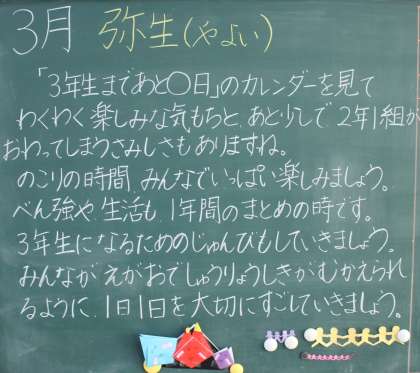 3月 弥生(やよい)
「3年生まであと○日」のカレンダーを見て
わくわく楽しみな気もちと、あと少しで2年1組が
おわってしまうさみしさもありますね。
のこりの時間、みんなでいっぱい楽しみましょう。
べん強や生活も、1年間のまとめの時です。
3年生になるためのじゅんびもしていきましょう。
みんながえがおでしゅうりょうしきがむかえられ
るように、1日1日を大切にすごしていきましょう。